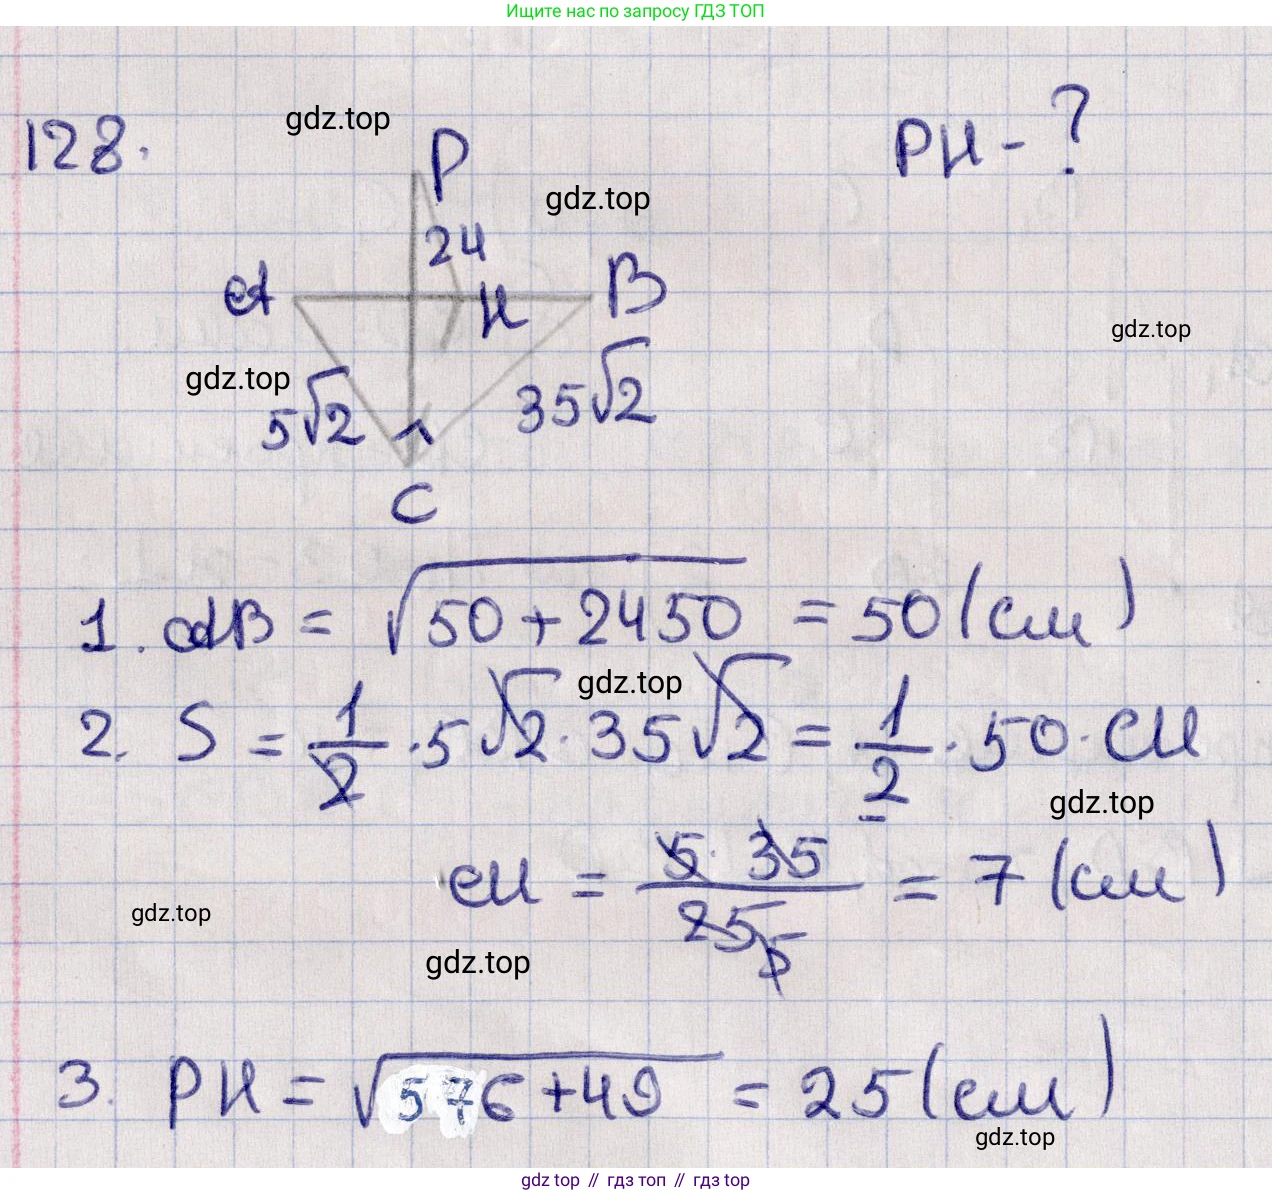 Ищите нас по запросу ГДЗ ТОП
128.
gdz.top
P
PH - ?
gdz.top
24
A
H
B
gdz.top
gdz.top
5√2
35√2
C
1. AB = √50 + 2450 = 50 (см)
gdz.top
2. S = 1/2 · 5√2 · 35√2 = 1/2 · 50 · CH
gdz.top
CH = 5 · 35 / 25 5 = 7 (см)
gdz.top
gdz.top
3. PH = √576 + 49 = 25 (см)
gdz.top
gdz top // гдз топ // гдз top